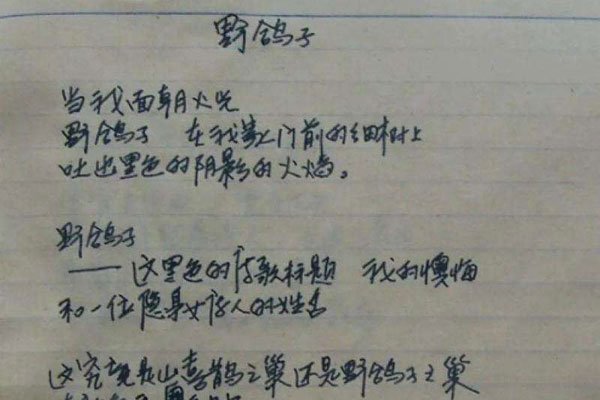 野鸽子
当我面朝火光
野鸽子 在我家门前的细树上
吐出黑色的阴影的火焰。
野鸽子
——这黑色的诗歌标题 我的懊悔
和一位隐身女诗人的姓名
这究竟是山喜鹊之巢还是野鸽子之巢